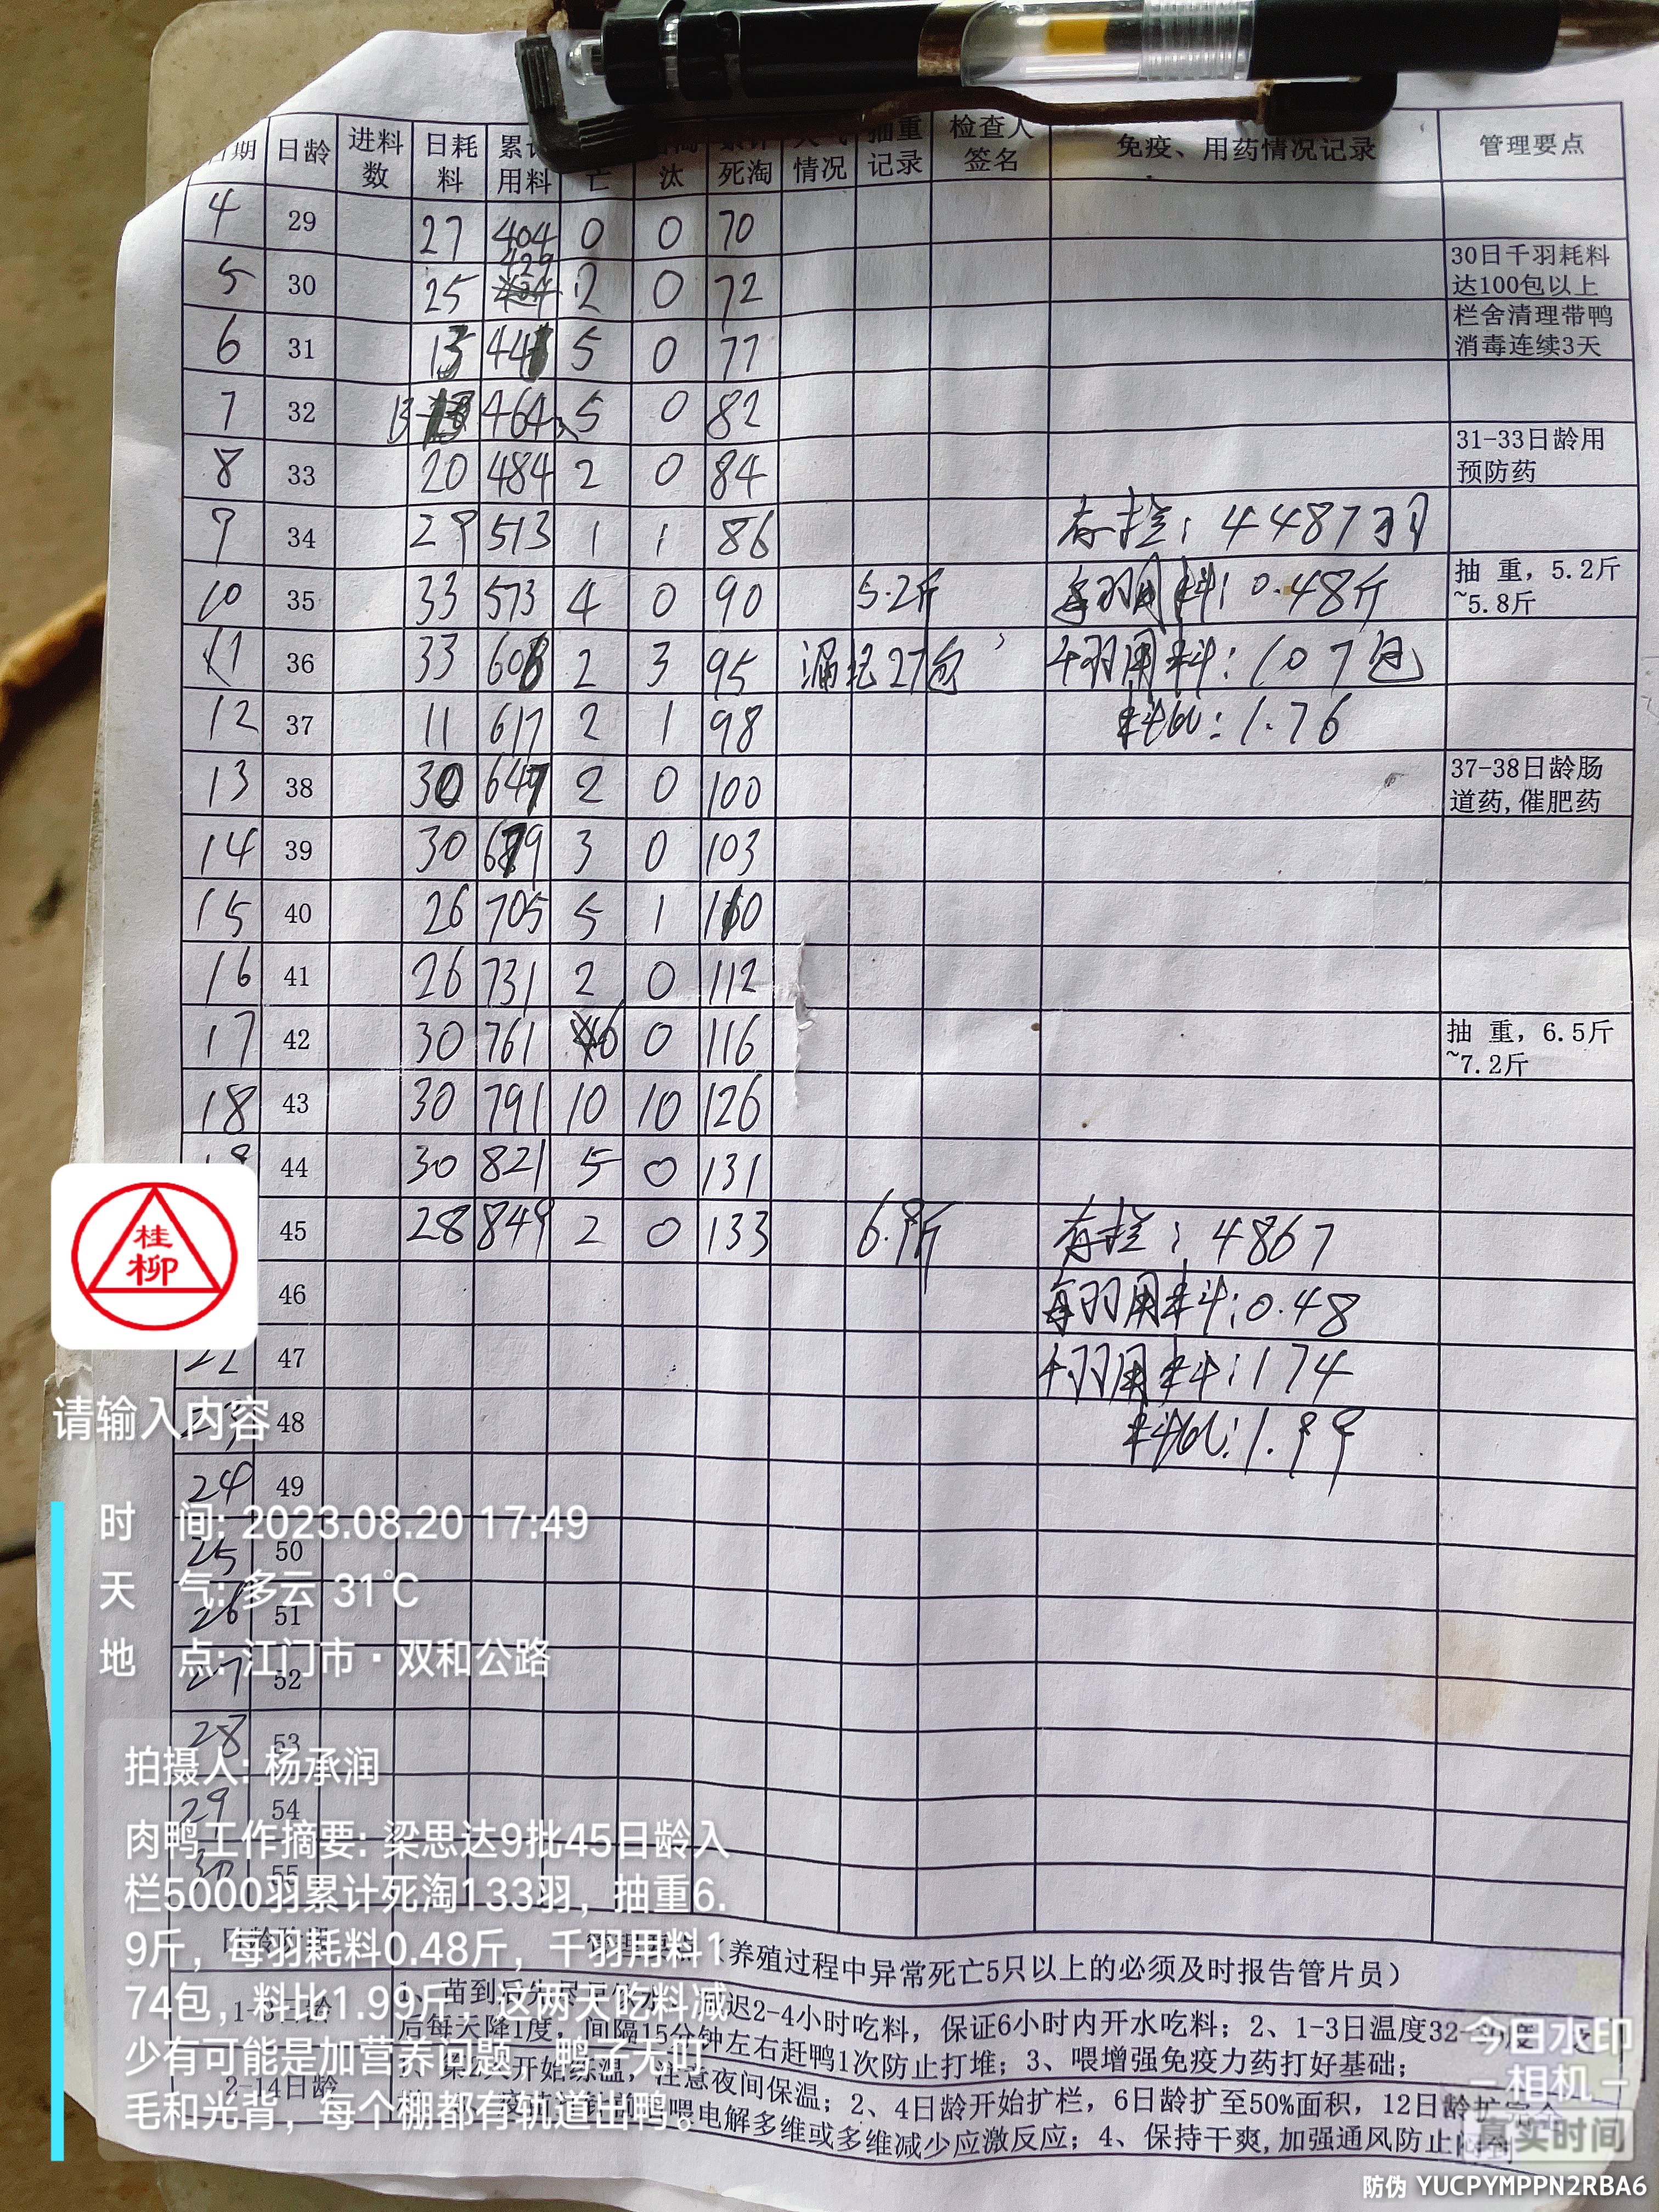 日期 日龄 进料数 日耗料 累计用料 亡 汰 累计死淘 天气情况 抽重记录 检查人签名 免疫、用药情况记录 管理要点
4 29 27 404 0 0 70
5 30 25 429 2 0 72 30日千羽耗料达100包以上
6 31 13 441 5 0 77 栏舍清理带鸭消毒连续3天
7 32 13 464 5 0 82
8 33 20 484 2 0 84 31-33日龄用预防药
9 34 29 513 1 1 86 存栏:4487羽
10 35 33 573 4 0 90 5.2斤 每羽用料:0.48斤 抽 重, 5.2斤~5.8斤
11 36 33 608 2 3 95 漏记27包 千羽用料:107包
12 37 11 617 2 1 98 料比:1.76
13 38 30 647 2 0 100 37-38日龄肠道药,催肥药
14 39 30 679 3 0 103
15 40 26 705 5 1 110
16 41 26 731 2 0 112
17 42 30 761 6 0 116 抽 重, 6.5斤~7.2斤
18 43 30 791 10 10 126
19 44 30 821 5 0 131
45 28 849 2 0 133 6.9斤 存栏:4867
46 每羽用料:0.48
22 47 千羽用料:174
23 48 料比:1.99
24 49
25 50
26 51
27 52
28 53
29 54
30 55
桂柳
请输入内容
时 间: 2023.08.20 17:49
天 气: 多云 31℃
地 点: 江门市·双和公路
拍摄人: 杨承润
肉鸭工作摘要: 梁思达9批45日龄入
栏5000羽累计死淘133羽, 抽重6.
9斤, 每羽耗料0.48斤, 千羽用料1
74包, 料比1.99斤, 这两天吃料减
少有可能是加营养问题, 鸭子无叮
毛和光背, 每个棚都有轨道出鸭。
(养殖过程中异常死亡5只以上的必须及时报告管片员)
1-3日龄
迟2-4小时吃料, 保证6小时内开水吃料; 2、1-3日温度32
后每天降1度, 间隔15分钟左右赶鸭1次防止打堆; 3、喂增强免疫力药打好基础;
2-14日龄
开始练温, 注意夜间保温; 2、4日龄开始扩栏, 6日龄扩至50%面积, 12日龄扩
喂电解多维或多维减少应激反应; 4、保持干爽,加强通风防止
今日水印
相机
真实时间
防伪 YUCPYMPPN2RBA6